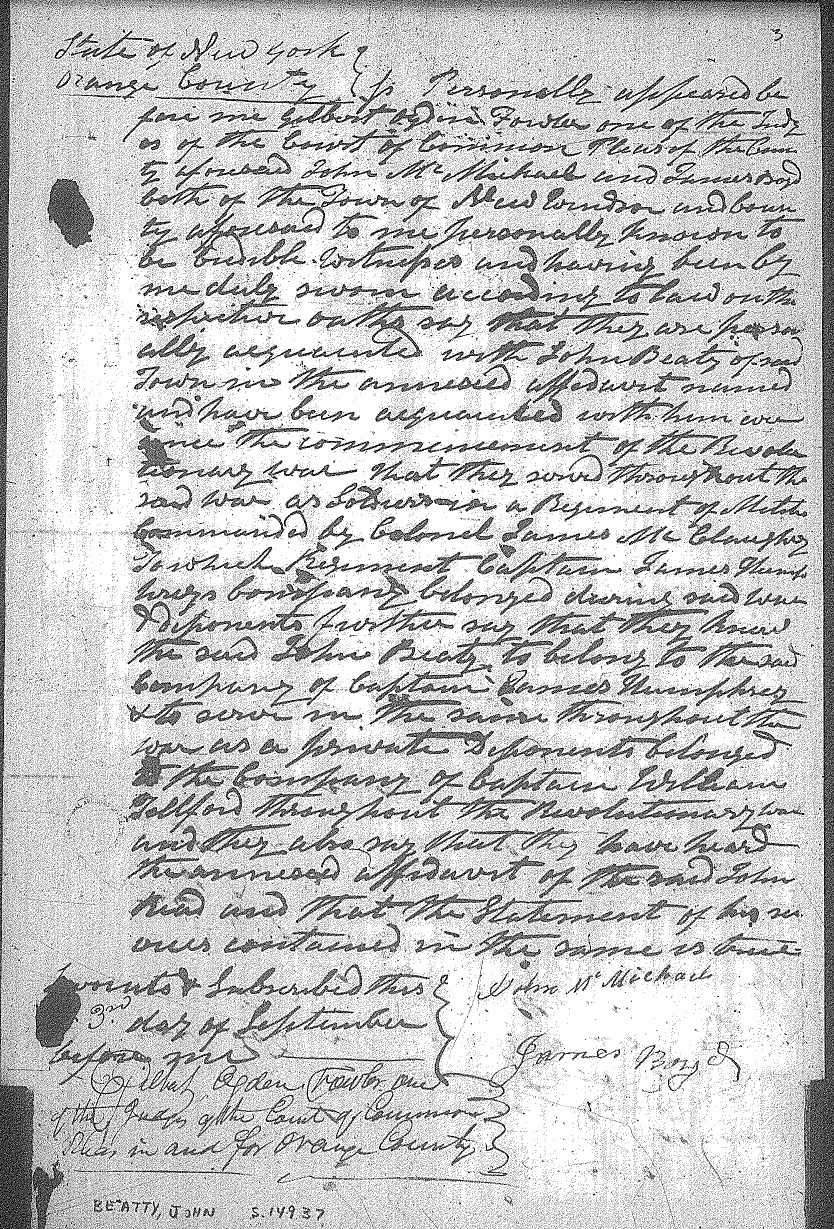 3
State of New York }
Orange County } ss Personally appeared be
fore me Gilbert Ogden Fowler one of the Judg
es of the Court of Common Pleas of the Coun
ty aforesaid John McMichael and James Boyd
both of the Town of New Windsor and Coun
ty aforesaid to me personally known to
be credible witnesses and having been by
me duly sworn according to law on the
respective oaths say that they are person
ally acquainted with John Beaty of said
Town in the annexed affidavit named
and have been acquainted with him ever
since the commencement of the Revolu
tionary war that they served throughout the
said war as Soldiers in a Regiment of Militia
Commanded by Colonel James McClaughry
To which Regiment Captain James Humph
reys Company belonged during said war
& deponents further say that they knew
the said John Beaty to belong to the said
Company of Captain James Humphrey
& to serve in the same throughout the
war as a private Deponents belonged
to the Company of Captain William
Tellford throughout the Revolutionary war
and they also say that they have heard
the annexed affidavit of the said John
Read and that the Statement of his ser
vices contained in the same is true
Sworn to & Subscribed this } John McMichael
3rd day of September
before me } James Boyd
Gilbert Ogden Fowler one
of the Judges of the Court of Common
Pleas in and for Orange County
BEATTY, JOHN S.14937